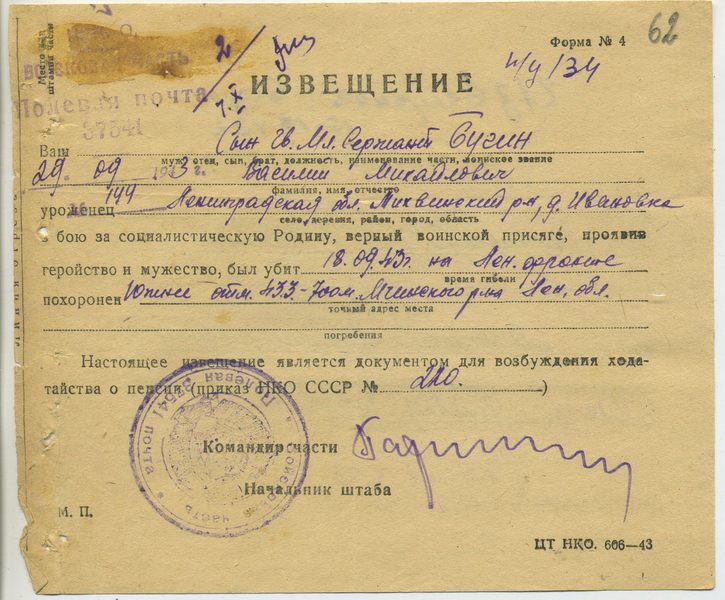 Форма № 4
62
Место для
штампа части
войсковая часть
Полевая почта
57541
2
7.X
н/у/34
ИЗВЕЩЕНИЕ
Ваш Сын гв. Мл. Сержант Бугин
муж, отец, сын, брат, должность, наименование части, воинское звание
29 09 1943 г. Василий Михайлович
фамилия, имя, отчество
144
уроженец Ленинградской обл. р-н, д. Ивановка
село, деревня, район, город, область
в бою за социалистическую Родину, верный воинской присяге, проявив
геройство и мужество, был убит 18.09.43г. на Лен. фронте
время гибели
похоронен Южнее отм. 43.3-700м. Мгинского р-на Лен. обл.
точный адрес места
погребения
Настоящее извещение является документом для возбуждения хода-
тайства о пенсии (приказ НКО СССР № 220.)
Командир части
Начальник штаба
М. П.
Полевая почта 57541
Войсковая часть
ЦТ НКО. 606—43